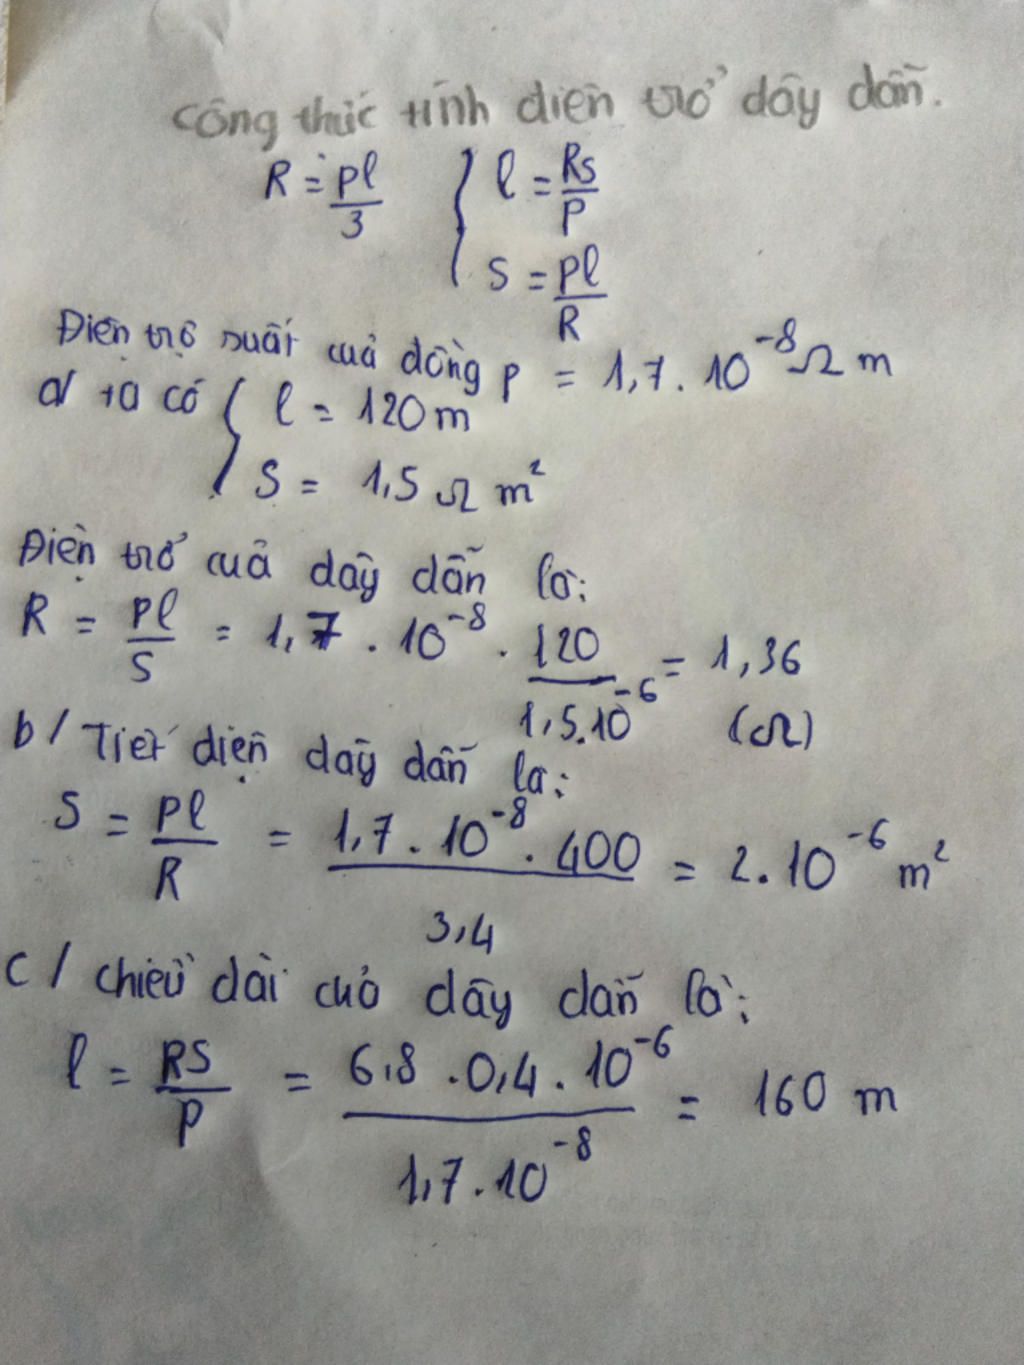 công thức tính điện trở dây dẫn.
R = pl/3 { l = Rs/P
S = pl/R
Điện trở suất cuả đồng p = 1,7 . 10^-8 Ω m
a/ ta có { l = 120 m
S = 1,5 Ω m²
Điện trở cuả dây dẫn là:
R = pl/S = 1,7 . 10^-8 . 120/1,5.10^-6 = 1,36
(Ω)
b/ Tiết diện dây dẫn là:
S = pl/R = 1,7 . 10^-8 . 400/3,4 = 2.10^-6 m²
c/ chiều dài của dây dẫn là:
l = RS/P = 6,8 . 0,4 . 10^-6/1,7.10^-8 = 160 m